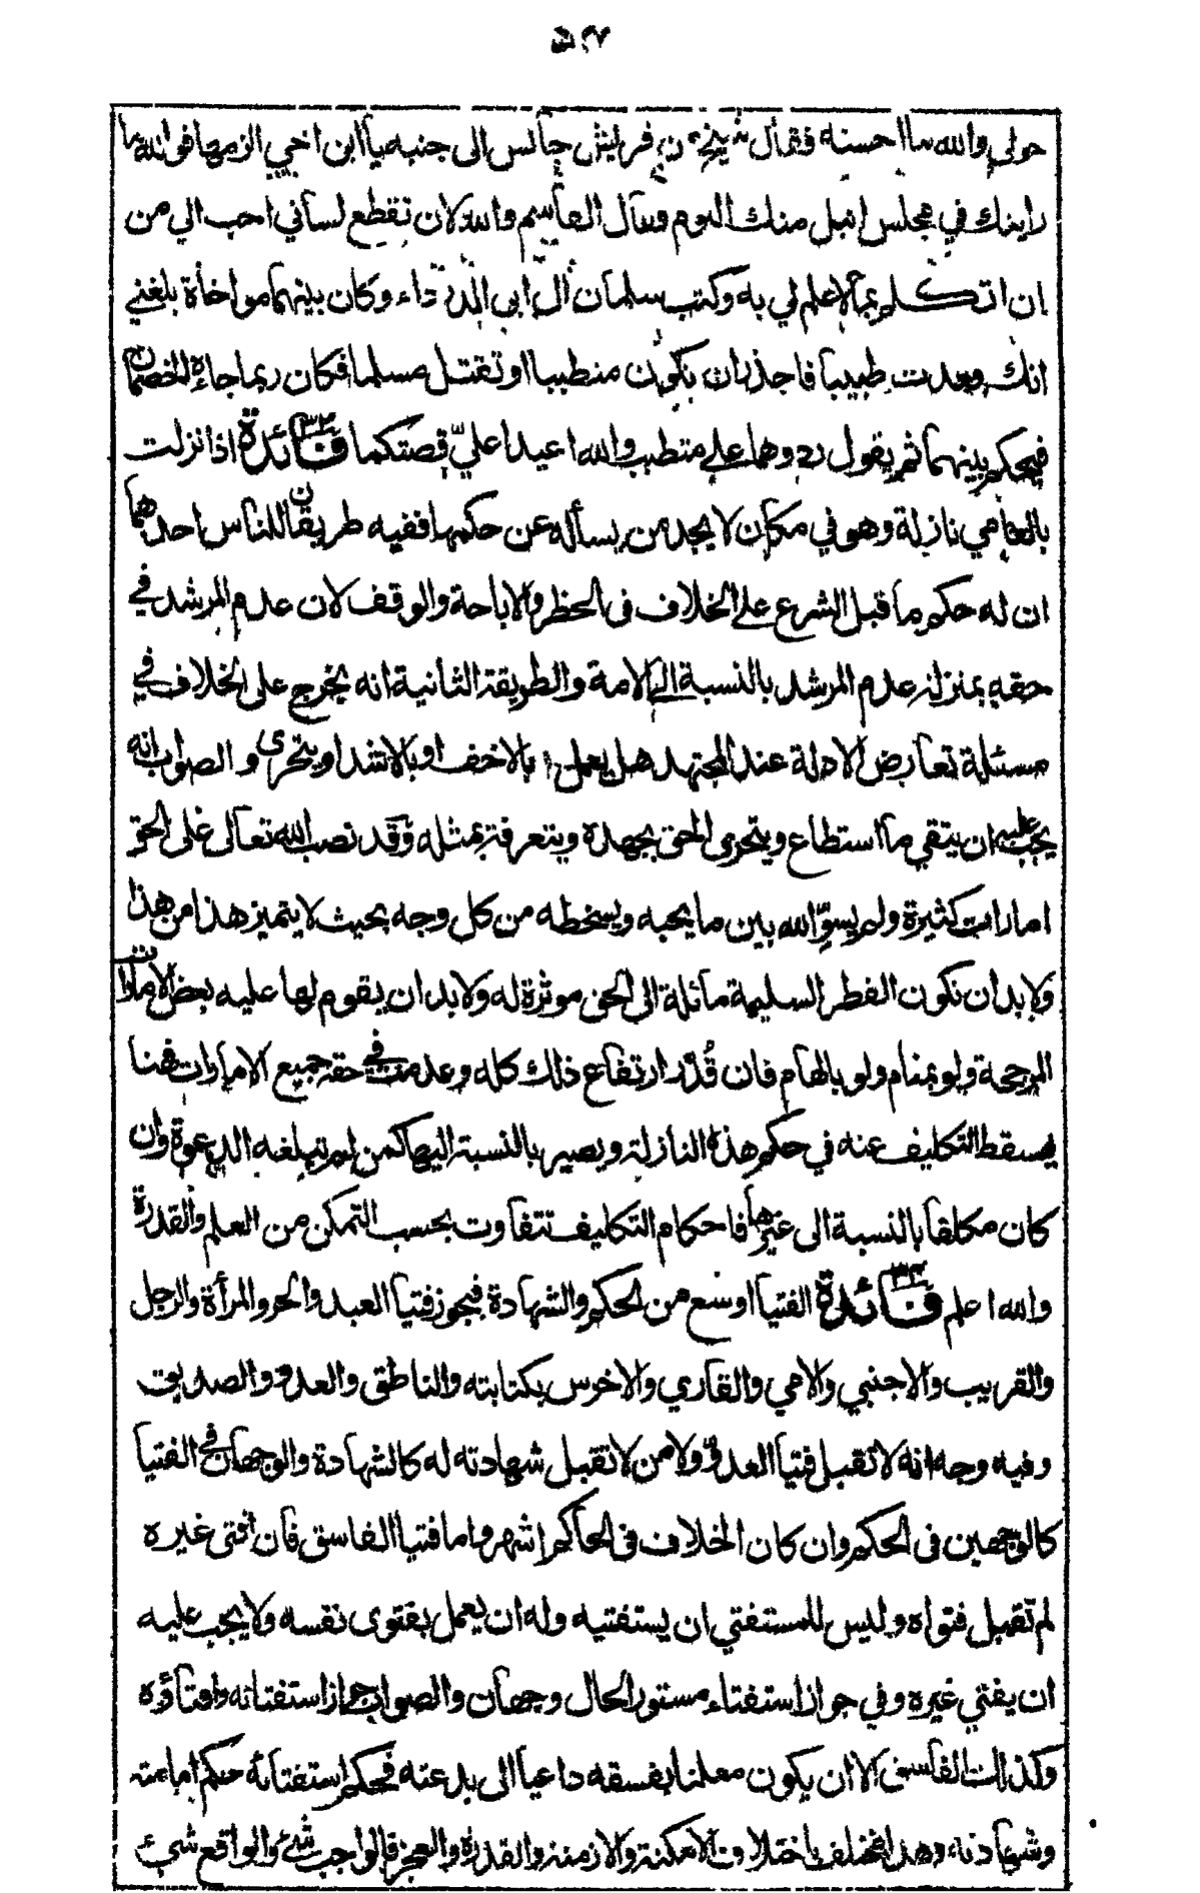 ٥٢٧
حولي والله ما احسنه فقال شيخ من قريش جالس الى جنبه ياابن اخي الزمها فوالله ما
رايتك في مجلس انبل منك اليوم وقال القاسم والله لان يقطع لساني احب الي من
ان اتكلم بما لا علم لي به وكتب سلمان الى ابي الدرداء وكان بينهما مواخاة بلغني
انك قعدت طبيبا فاحذر ان تكون متطببا او تقتل مسلما فكان ربما جاءه الخصمان
فيحكم بينهما ثم يقول ردوهما علي متطبب والله اعيدا علي قصتكما فائدة ٣٢ اذا نزلت
بالعامي نازلة وهو في مكان لا يجد من يسأله عن حكمها ففيه طريقان للناس احدهما
ان له حكم ما قبل الشرع على الخلاف في الحظر والاباحة والوقف لان عدم المرشد في
حقه بمنزلة عدم المرشد بالنسبة الى الامة والطريقة الثانية انه يخرج على الخلاف في
مسئلة تعارض الادلة عند المجتهد هل يعمل بالاخف او بالاشد او يتحرى والصواب انه
يجب عليه ان يتقي ما استطاع ويتحرى الحق بجهده ويتعرفة بمثله وقد نصب الله تعالى على الحق
امارات كثيرة ولم يسو الله بين ما يحبه ويسخطه من كل وجه بحيث لا يتميز هذا من هذا
ولا بد ان تكون الفطر السليمة مائلة الى الحق موثرة له ولا بد ان يقوم لها عليه بعض الامارات
المرجحة ولو بمنام ولو بالهام فان قُدّر ارتفاع ذلك كله وعدمت في حقه جميع الامارات فهنا
يسقط التكليف عنه في حكم هذه النازلة ويصير بالنسبة اليها كمن لم تبلغه الدعوة وان
كان مكلفا بالنسبة الى غيرها فاحكام التكليف تتفاوت بحسب التمكن من العلم والقدرة
والله اعلم فائدة ٣٣ الفتيا اوسع من الحكم والشهادة فيجوز فتيا العبد والحر والمرأة والرجل
والقريب والاجنبي والامي والقاري والاخرس بكتابته والناطق والعدو والصديق
وفيه وجه انه لا تقبل فتيا العدو ولا من لا تقبل شهادته له كالشهادة والوجهان في الفتيا
كالوجهين في الحكم وان كان الخلاف في الحاكم اشهر واما فتيا الفاسق فان افتى غيره
لم تقبل فتواه وليس للمستفتي ان يستفتيه وله ان يعمل بفتوى نفسه ولا يجب عليه
ان يفتي غيره وفي جواز استفتاء مستور الحال وجهان والصواب جواز استفتائه وافتاؤه
وكذلك الفاسق الا ان يكون معلنا بفسقه داعيا الى بدعته فحكم استفتائه حكم امامته
وشهادته وهذا يختلف باختلاف الامكنة والازمنة والقدرة والعجز فالواجب شئ والواقع شئ